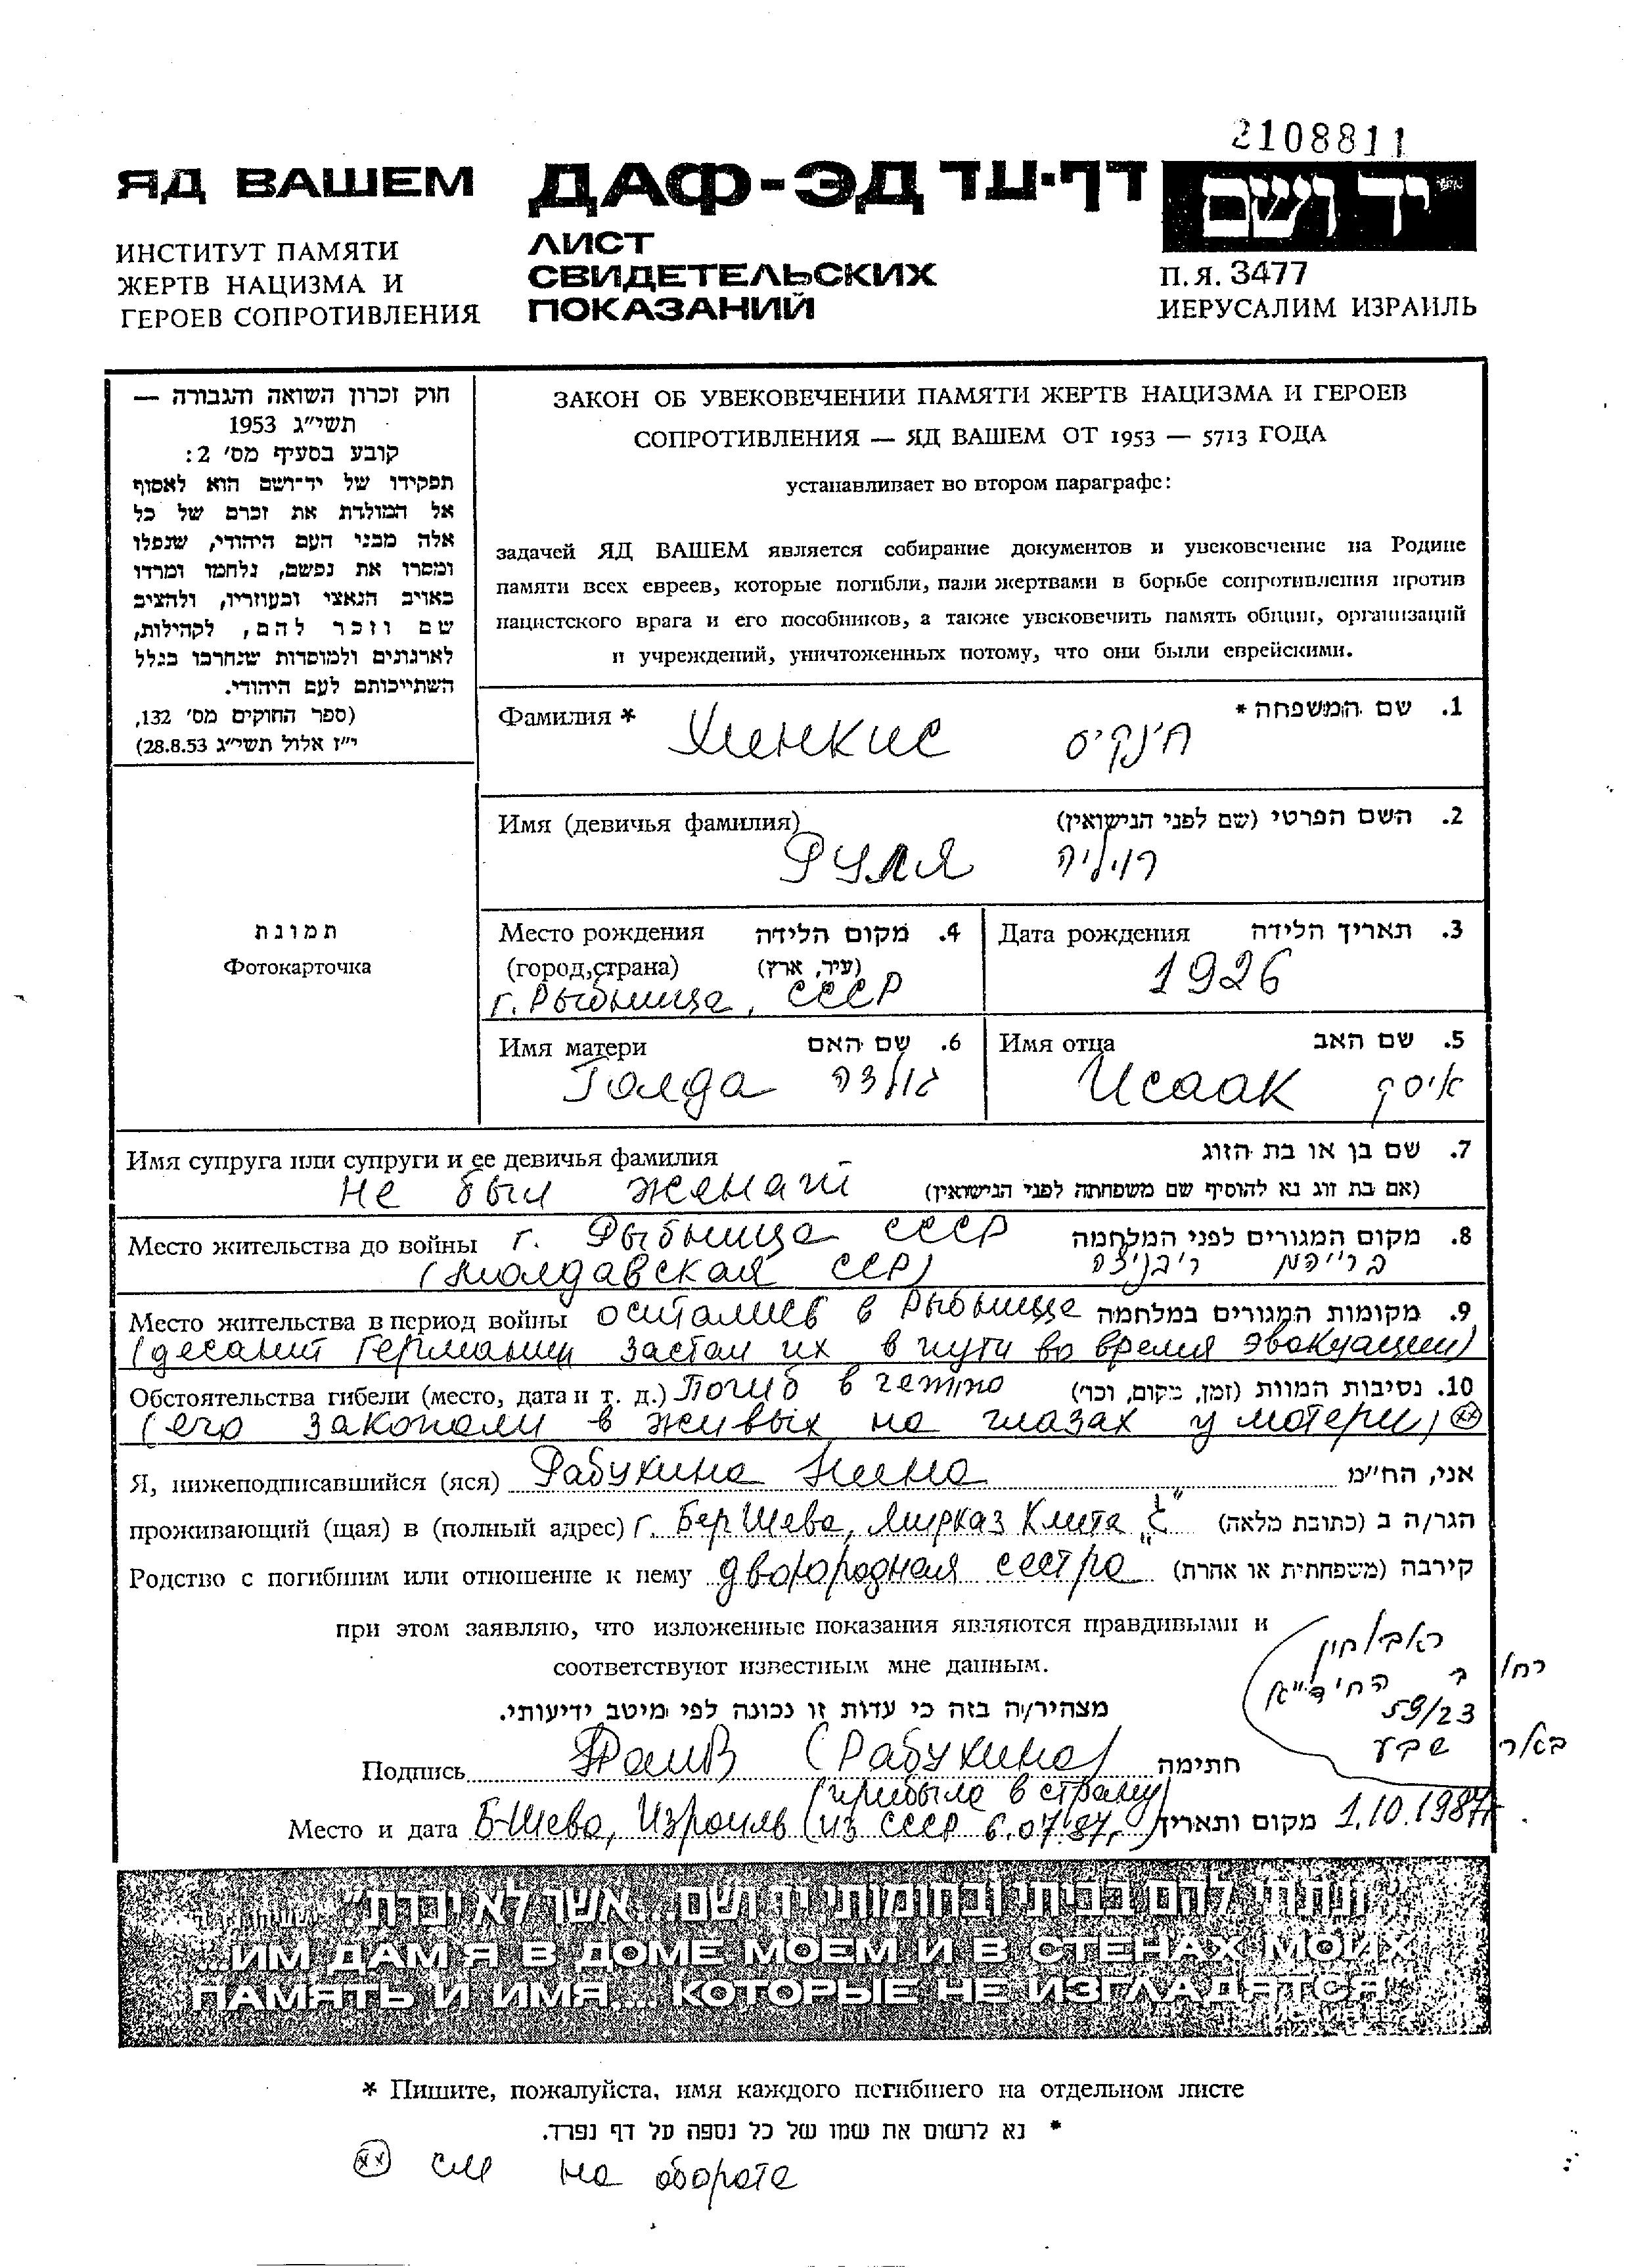 2108811
ЯД ВАШЕМ
ДАФ-ЭД דף-עד
יד ושם
ИНСТИТУТ ПАМЯТИ
ЖЕРТВ НАЦИЗМА И
ГЕРОЕВ СОПРОТИВЛЕНИЯ
ЛИСТ
СВИДЕТЕЛЬСКИХ
ПОКАЗАНИЙ
П.Я. 3477
ИЕРУСАЛИМ ИЗРАИЛЬ
חוק זכרון השואה והגבורה —
תשי״ג 1953
קובע בסעיף מס׳ 2:
תפקידו של יד־ושם הוא לאסוף
אל המולדת את זכרם של כל
אלה מבני העם היהודי, שנפלו
ומסרו את נפשם, נלחמו ומרדו
באויב הנאצי ובעוזריו, ולהציב
שם וזכר להם, לקהילות,
לארגונים ולמוסדות שנחרבו בגלל
השתייכותם לעם היהודי.
(ספר החוקים מס׳ 132,
י״ז אלול תשי״ג 28.8.53)
ЗАКОН ОБ УВЕКОВЕЧЕНИИ ПАМЯТИ ЖЕРТВ НАЦИЗМА И ГЕРОЕВ
СОПРОТИВЛЕНИЯ — ЯД ВАШЕМ ОТ 1953 — 5713 ГОДА
устанавливает во втором параграфе:
задачей ЯД ВАШЕМ является собирание документов и увековечение на Родине
памяти всех евреев, которые погибли, пали жертвами в борьбе сопротивления против
нацистского врага и его пособников, а также увековечить память общин, организаций
и учреждений, уничтоженных потому, что они были еврейскими.
Фамилия * 1. שם המשפחה *
Хинкис חינקיס
Имя (девичья фамилия) 2. השם הפרטי (שם לפני הנישואין)
Руля רוליה
Место рождения 4. מקום הלידה
(город,страна) (עיר, ארץ)
г. Рыбница, СССР
Дата рождения 3. תאריך הלידה
1926
Имя матери 6. שם האם
Голда גולדה
Имя отца 5. שם האב
Исаак איסק
תמונת
Фотокарточка
Имя супруга или супруги и ее девичья фамилия 7. שם בן או בת הזוג
не был женат (אם בת זוג נא להוסיף שם משפחתה לפני הנישואין)
Место жительства до войны г. Рыбница СССР 8. מקום המגורים לפני המלחמה
(Молдавская ССР) ריבניצה ברייהמ
Место жительства в период войны остались в Рыбнице 9. מקומות המגורים במלחמה
(десант Германии застал их в пути во время эвакуации)
Обстоятельства гибели (место, дата и т. д.) Погиб в гетто 10. נסיבות המוות (זמן, מקום, וכו׳)
(его закопали в живых на глазах у матери) xx
Я, нижеподписавшийся (яся) Рабухина Нина אני, הח״מ
проживающий (щая) в (полный адрес) г. Бер Шева, Мирказ Клита הגר/ה ב (כתובת מלאה)
Родство с погибшим или отношение к нему двоюродная сестра קירבה (משפחתית או אחרת)
при этом заявляю, что изложенные показания являются правдивыми и
соответствуют известным мне данным.
מצהיר/ה בזה כי עדות זו נכונה לפי מיטב ידיעותי.
ראבוחין
רח׳ החיד״א
59/23
באר שבע
Подпись (Рабухина) חתימה
(прибыла в страну
Место и дата Б-Шева, Израиль из СССР 6.07.87г.) מקום ותאריך 1.10.1987г
״ונתתי להם בביתי ובחומותי יד ושם...אשר לא יכרת״.
"...ИМ ДАМ Я В ДОМЕ МОЕМ И В СТЕНАХ МОИХ
ПАМЯТЬ И ИМЯ.... КОТОРЫЕ НЕ ИЗГЛАДЯТСЯ"
* Пишите, пожалуйста, имя каждого погибшего на отдельном листе
* נא לרשום את שמו של כל נספה על דף נפרד.
xx см на обороте